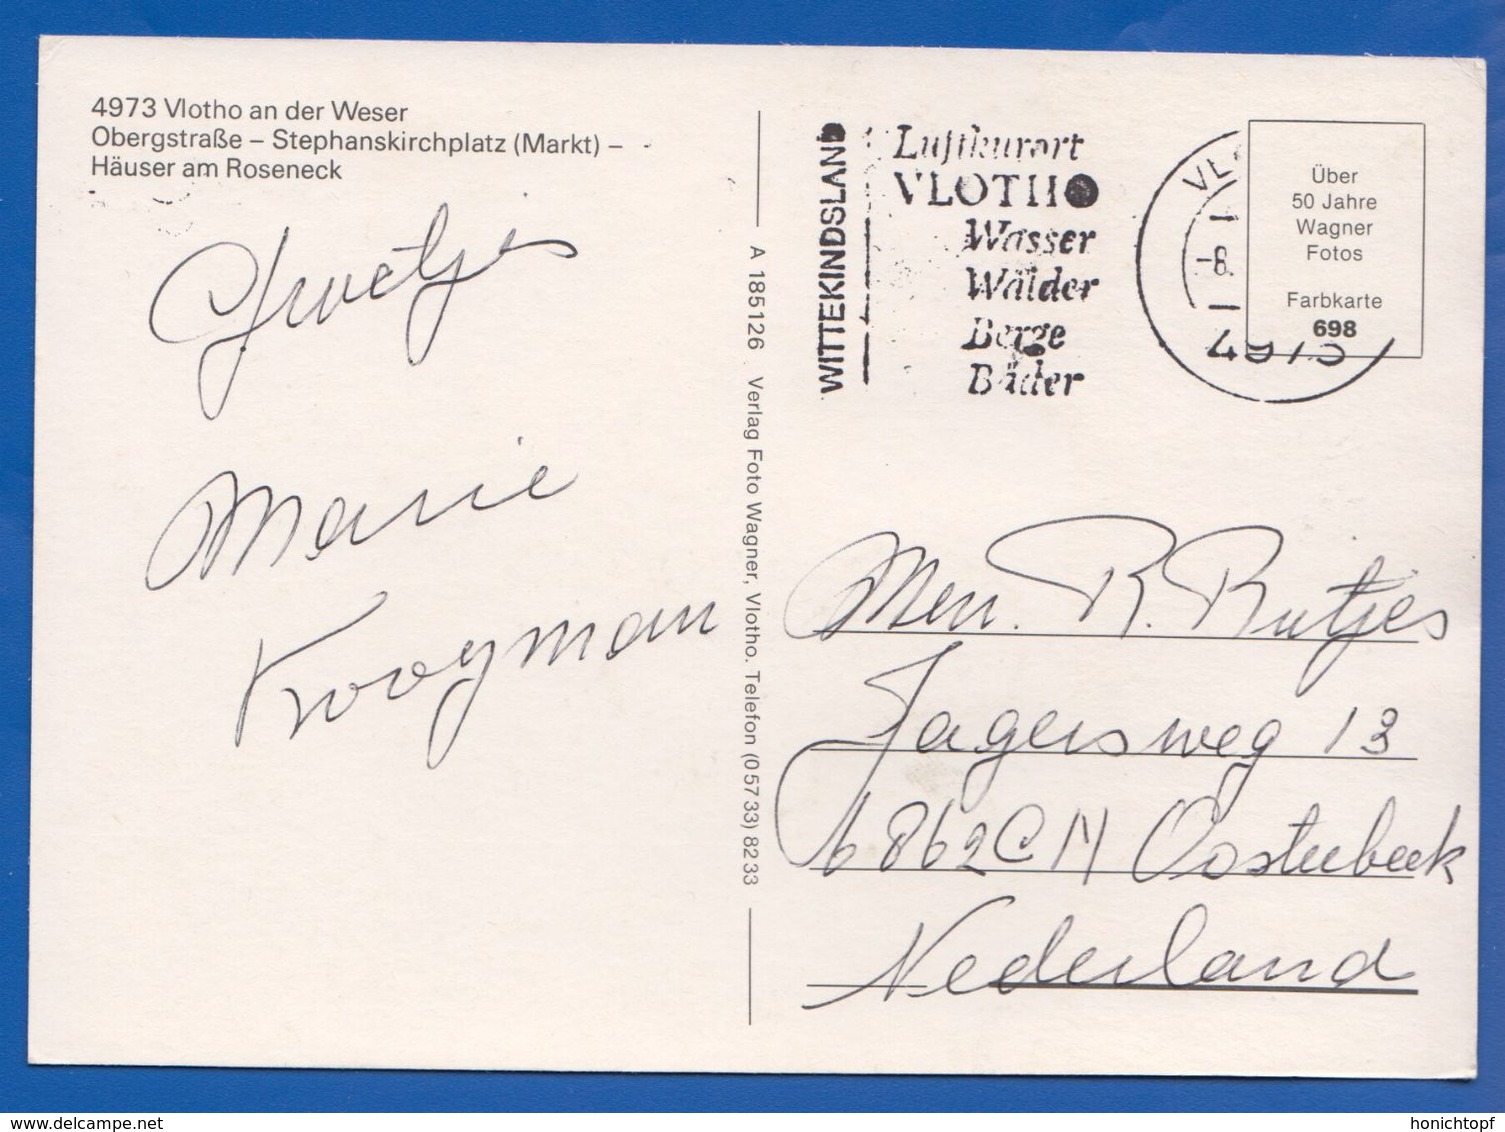 4973 Vlotho an der Weser
Obergstraße – Stephanskirchplatz (Markt) –
Häuser am Roseneck
Groetjes
Marie
Kooyman
A 185126 Verlag Foto Wagner, Vlotho. Telefon (05733) 8233
WITTEKINDSLAND
Luftkurort
VLOTHO
Wasser
Wälder
Berge
Bäder
-8.
Über
50 Jahre
Wagner
Fotos
Farbkarte
698
Men. R. Rutjes
Jagersweg 13
6862CN Oosterbeek
Nederland
www.delcampe.net
honichtopf